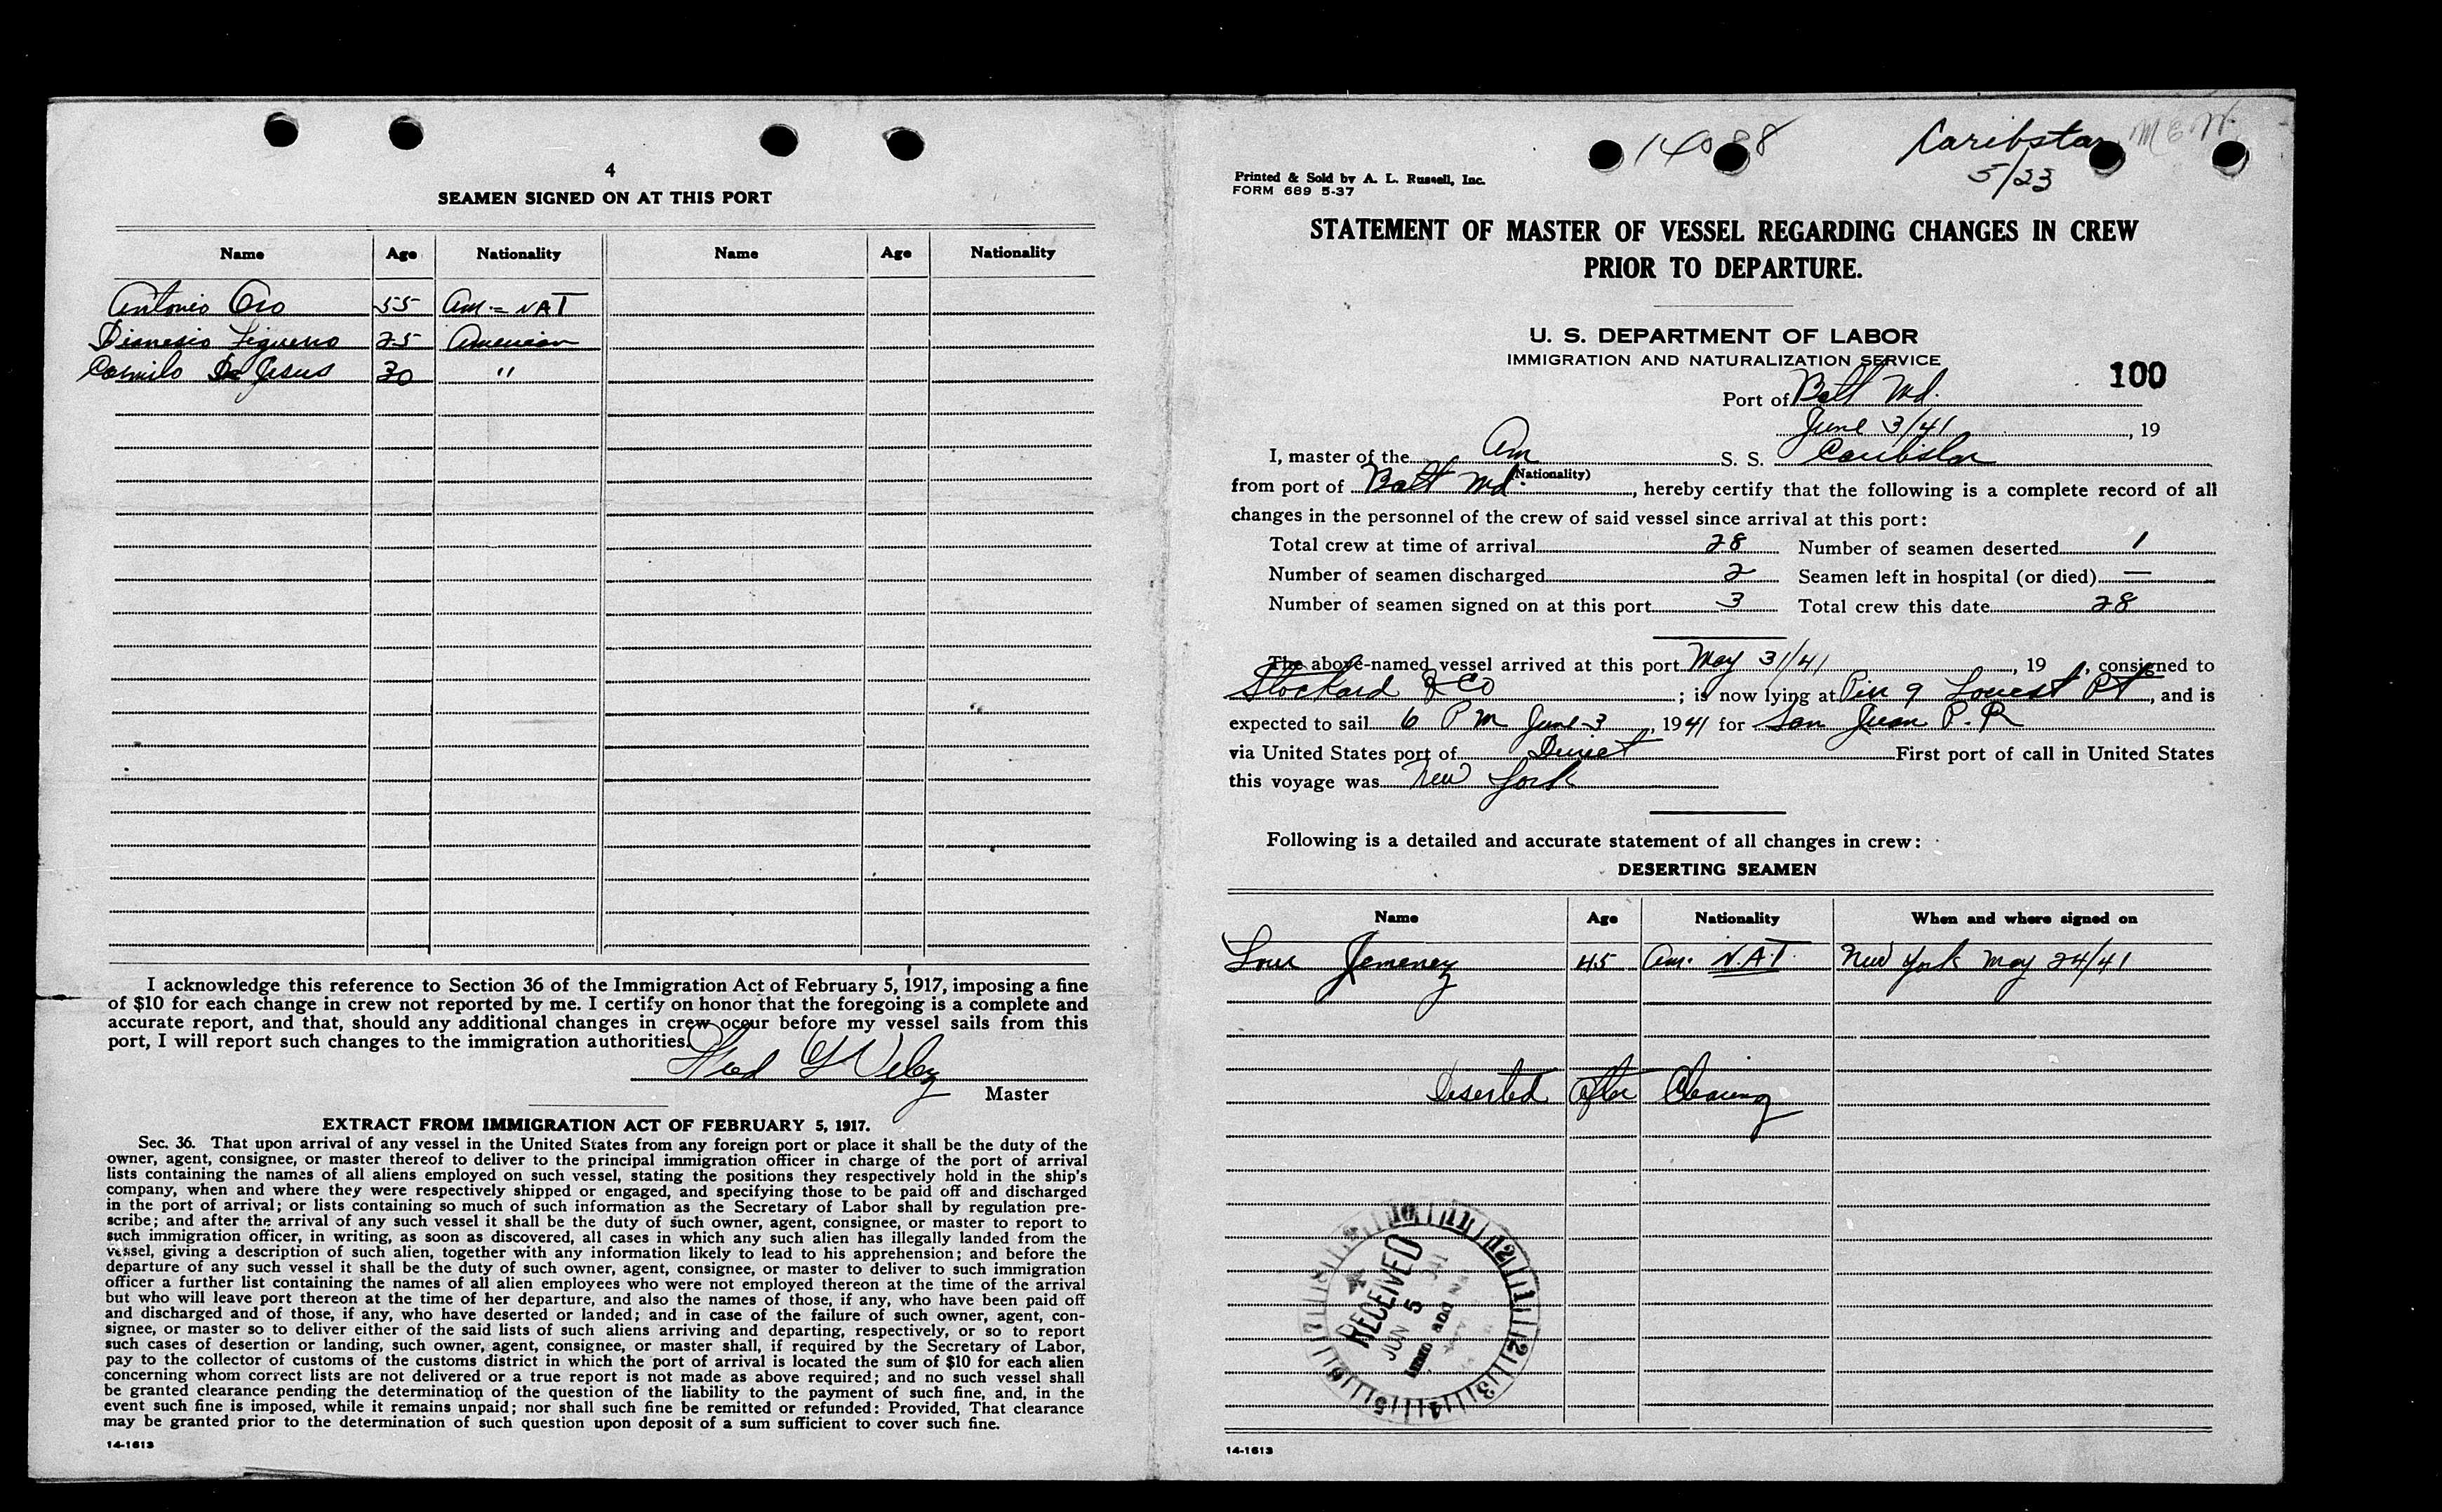 4
SEAMEN SIGNED ON AT THIS PORT
Name Age Nationality Name Age Nationality
Antonio Oro 55 Am. = NAT
Dionesio Figueroa 25 American
Camilo De Jesus 30 "
I acknowledge this reference to Section 36 of the Immigration Act of February 5, 1917, imposing a fine
of $10 for each change in crew not reported by me. I certify on honor that the foregoing is a complete and
accurate report, and that, should any additional changes in crew occur before my vessel sails from this
port, I will report such changes to the immigration authorities.
Master
EXTRACT FROM IMMIGRATION ACT OF FEBRUARY 5, 1917.
Sec. 36. That upon arrival of any vessel in the United States from any foreign port or place it shall be the duty of the
owner, agent, consignee, or master thereof to deliver to the principal immigration officer in charge of the port of arrival
lists containing the names of all aliens employed on such vessel, stating the positions they respectively hold in the ship's
company, when and where they were respectively shipped or engaged, and specifying those to be paid off and discharged
in the port of arrival; or lists containing so much of such information as the Secretary of Labor shall by regulation pre-
scribe; and after the arrival of any such vessel it shall be the duty of such owner, agent, consignee, or master to report to
such immigration officer, in writing, as soon as discovered, all cases in which any such alien has illegally landed from the
vessel, giving a description of such alien, together with any information likely to lead to his apprehension; and before the
departure of any such vessel it shall be the duty of such owner, agent, consignee, or master to deliver to such immigration
officer a further list containing the names of all alien employees who were not employed thereon at the time of the arrival
but who will leave port thereon at the time of her departure, and also the names of those, if any, who have been paid off
and discharged and of those, if any, who have deserted or landed; and in case of the failure of such owner, agent, con-
signee, or master so to deliver either of the said lists of such aliens arriving and departing, respectively, or so to report
such cases of desertion or landing, such owner, agent, consignee, or master shall, if required by the Secretary of Labor,
pay to the collector of customs of the customs district in which the port of arrival is located the sum of $10 for each alien
concerning whom correct lists are not delivered or a true report is not made as above required; and no such vessel shall
be granted clearance pending the determination of the question of the liability to the payment of such fine, and, in the
event such fine is imposed, while it remains unpaid; nor shall such fine be remitted or refunded: Provided, That clearance
may be granted prior to the determination of such question upon deposit of a sum sufficient to cover such fine.
14-1613
Caribstar M E W
5/23
Printed & Sold by A. L. Russell, Inc.
FORM 689 5-37
STATEMENT OF MASTER OF VESSEL REGARDING CHANGES IN CREW
PRIOR TO DEPARTURE.
U. S. DEPARTMENT OF LABOR
IMMIGRATION AND NATURALIZATION SERVICE
100
Port of Balt Md.
June 3/41, 19
I, master of the Am S. S. Caribstar
(Nationality)
from port of Balt Md., hereby certify that the following is a complete record of all
changes in the personnel of the crew of said vessel since arrival at this port:
Total crew at time of arrival 28 Number of seamen deserted 1
Number of seamen discharged 2 Seamen left in hospital (or died) —
Number of seamen signed on at this port 3 Total crew this date 28
The above-named vessel arrived at this port May 31/41, 19 , consigned to
Stockard & Co; is now lying at Pier 9 Locust Pt, and is
expected to sail 6 P M June 3, 1941 for San Juan P. R
via United States port of Direct First port of call in United States
this voyage was New York
Following is a detailed and accurate statement of all changes in crew:
DESERTING SEAMEN
Name Age Nationality When and where signed on
Jemeney 45 Am. N.A.T. New York May 24/41
Deserted after Clearing
RECEIVED
JUN 5
14-1613